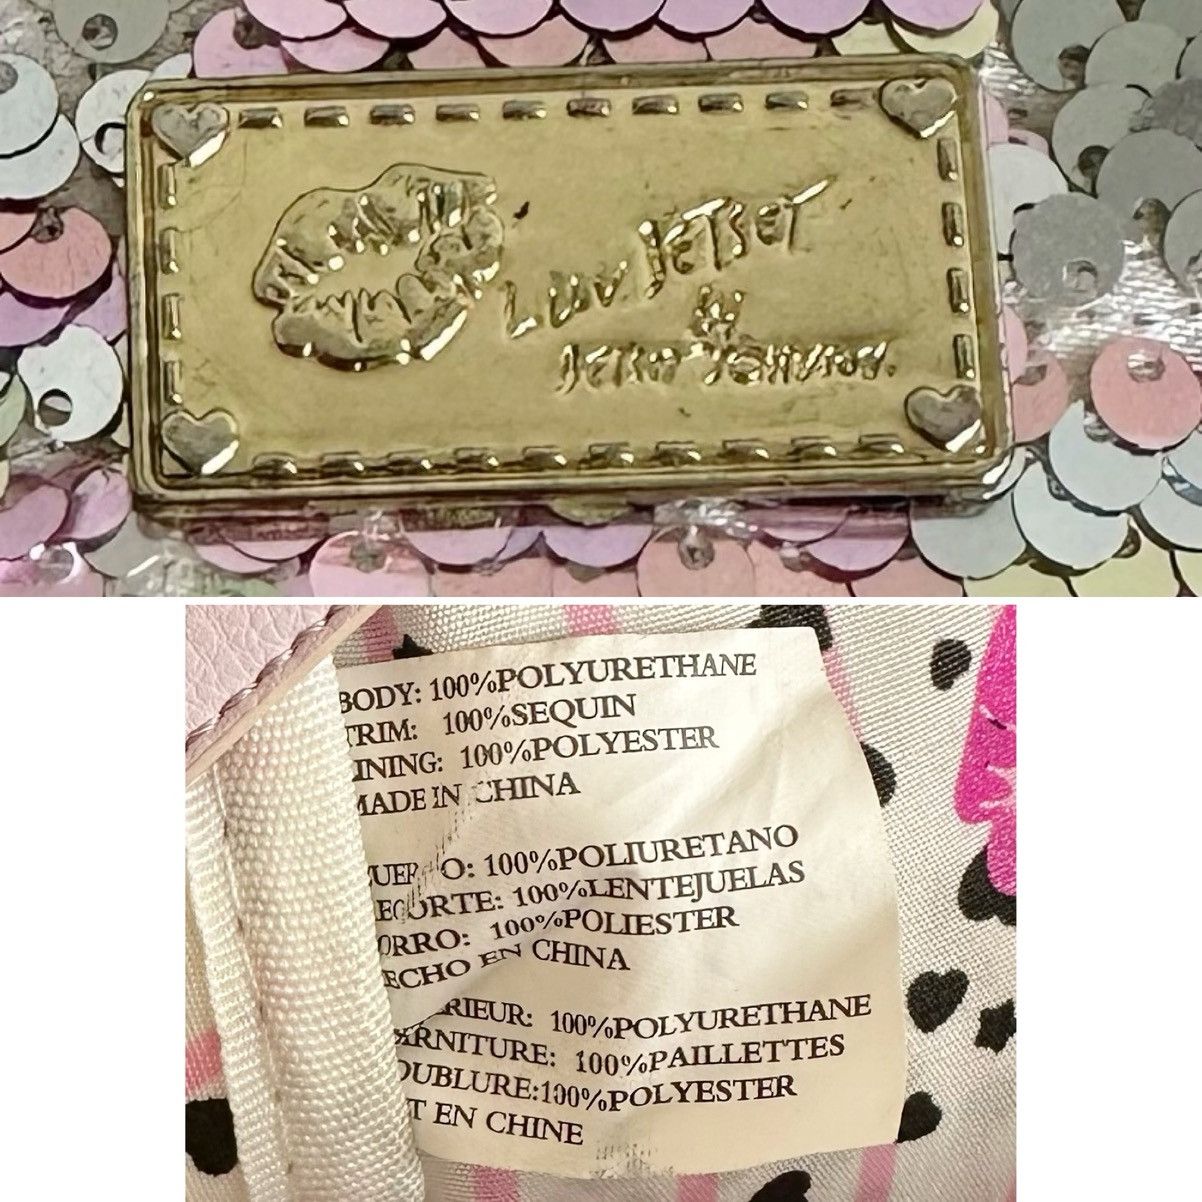 LUV JETSET
by
BETSEY JOHNSON.
BODY: 100%POLYURETHANE
TRIM: 100%SEQUIN
INING: 100%POLYESTER
MADE IN CHINA
UERPO: 100%POLIURETANO
ECORTE: 100%LENTEJUELAS
ORRO: 100%POLIESTER
ECHO EN CHINA
RIEUR: 100%POLYURETHANE
ARNITURE: 100%PAILLETTES
OUBLURE:100%POLYESTER
T EN CHINE